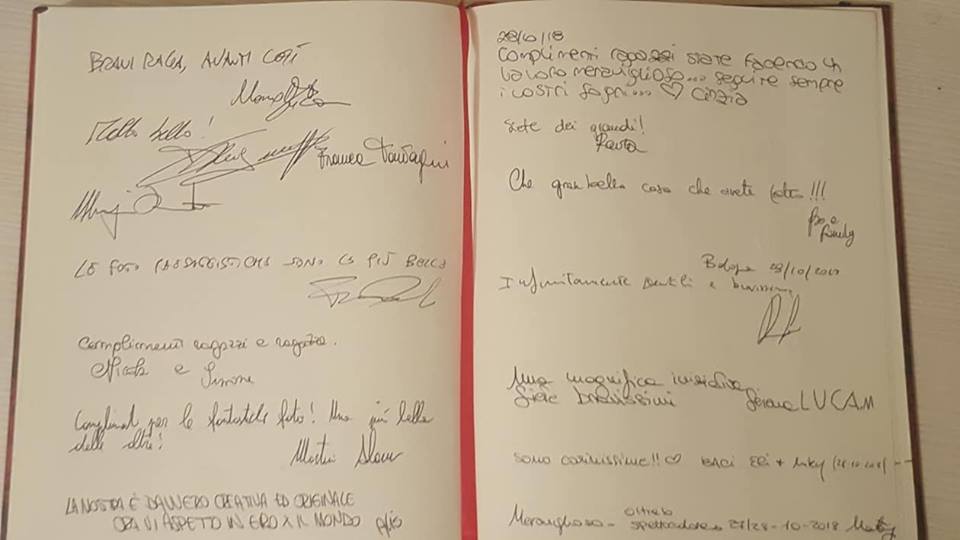 BRAVI RAGA, AVANTI COSÌ
Molto bello!
Franca
LE FOTO PAESAGGISTICHE SONO LE PIÙ BELLE
Complimenti ragazzi e ragazze.
Nicola e Simone
Complimenti per le fantastiche foto! Una più bella
delle altre!
Martin
LA MOSTRA È DAVVERO CREATIVA ED ORIGINALE
ORA VI ASPETTO IN GIRO X IL MONDO
28/10/18
Complimenti ragazzi state facendo un
lavoro meraviglioso... seguire sempre
i vostri sogni... ♡ Cinzia
Siete dei grandi!
Paola
Che gran bella cosa che avete fatto!!!
Bologna 28/10/2018
Infinitamente gentili e bravissimi
Una magnifica iniziativa
Siete bravissimi LUCAM
Sono carinissime!! ♡ BACI Eli + (28-10-2018)
Meraviglioso - oltre lo
spettacolo 27/28-10-2018